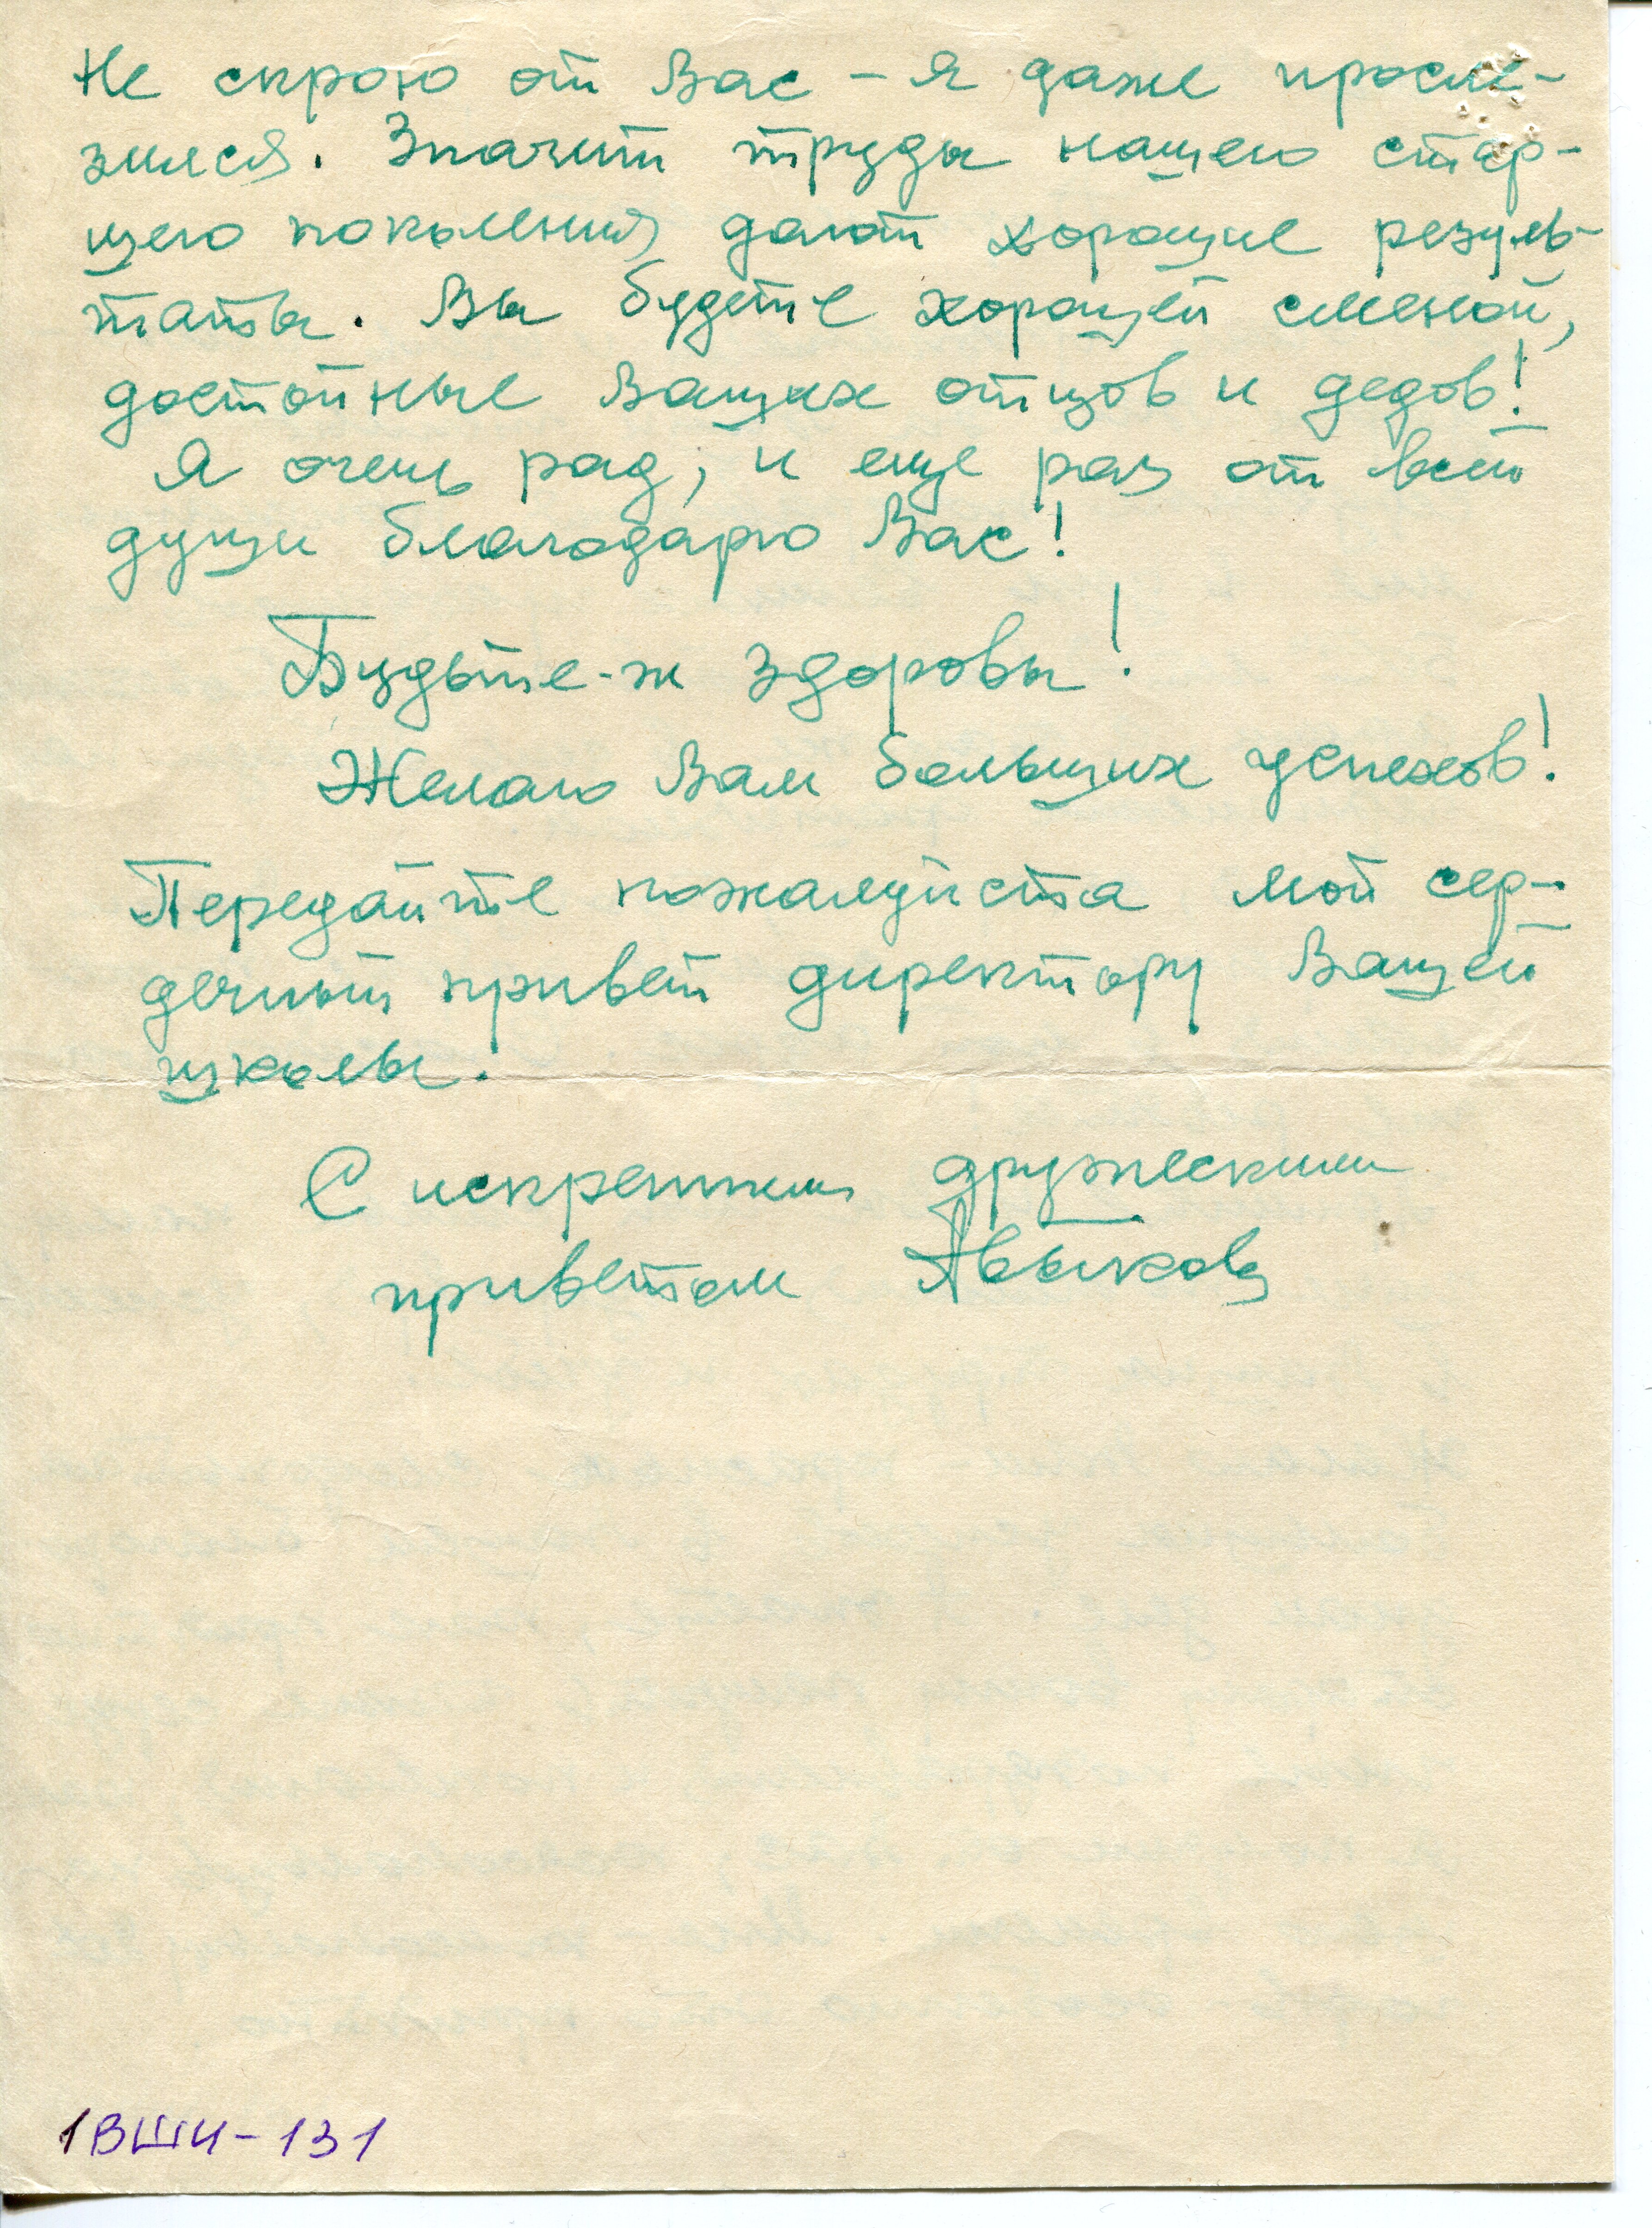 Не скрою от Вас – я даже просле-
зился. Значит труды нашего стар-
шего поколения дают хорошие резуль-
таты. Вы будете хорошей сменой,
достойные Ваших отцов и дедов!
Я очень рад, и еще раз от всей
души благодарю Вас!
Будьте-ж здоровы!
Желаю Вам больших успехов!
Передайте пожалуйста мой сер-
дечный привет директору Вашей
школы.
С искренним дружеским
приветом
1ВШИ-131